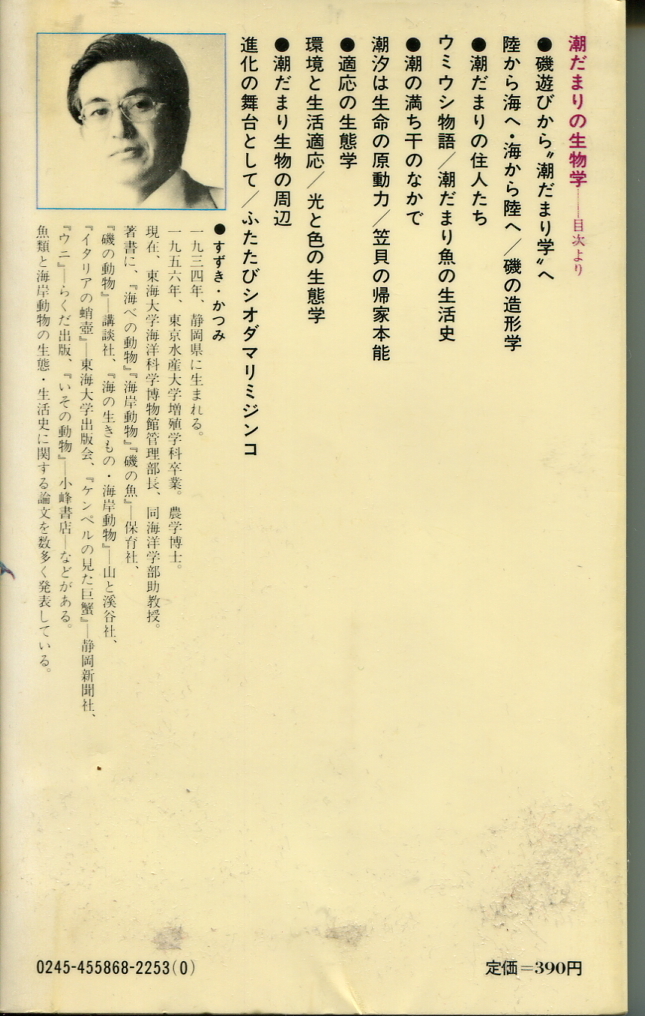 潮だまりの生物学——目次より
●磯遊びから〝潮だまり学〟へ
陸から海へ・海から陸へ／磯の造形学
●潮だまりの住人たち
ウミウシ物語／潮だまり魚の生活史
●潮の満ち干のなかで
潮汐は生命の原動力／笠貝の帰家本能
●適応の生態学
環境と生活適応／光と色の生態学
●潮だまり生物の周辺
進化の舞台として／ふたたびシオダマリミジンコ
●すずき・かつみ
一九三四年、静岡県に生まれる。
一九五六年、東京水産大学増殖学科卒業。農学博士。
現在、東海大学海洋科学博物館管理部長、同海洋学部助教授。
著書に、『海べの動物』『海岸動物』『磯の魚』—保育社、
『磯の動物』—講談社、『海の生きもの・海岸動物』—山と溪谷社、
『イタリアの蛸壺』—東海大学出版会、『ケンペルの見た巨蟹』—静岡新聞社、
『ウニ』—らくだ出版、『いその動物』—小峰書店—などがある。
魚類と海岸動物の生態・生活史に関する論文を数多く発表している。
0245-455868-2253(0)
定価=390円